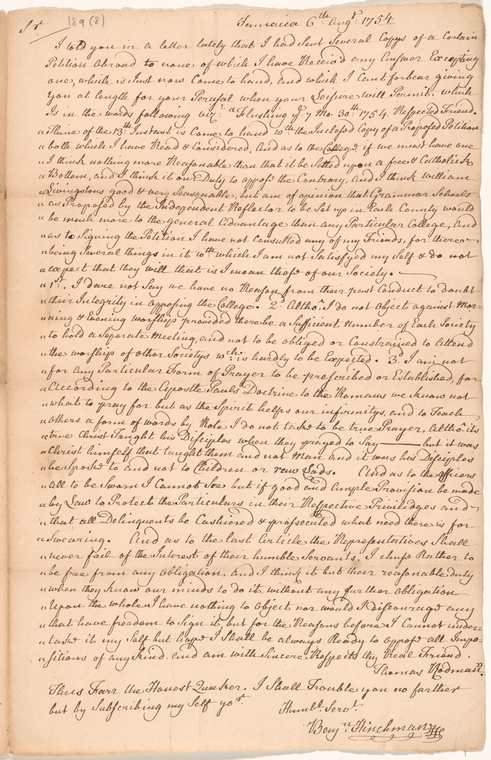 189 (8)
Sr
Jamaica 6th Augt. 1754
I told you in a letter lately that I had sent Several Copys of a Certain
Petition Abroad to none of which I have Receiv'd any Answer Excepting
one, which is Just now Come to hand, and which I Cant forbear giving
you at length for your Perusal when your Leisure will Permit. which
Is in the words following vizt: Flushing ye. 7 Mo. 30th 1754. Respected Friend.
" Thine of the 13th Instant is Come to hand wth the Inclosed Copy of a Proposed Petition
" both which I have Read & Considered, And as to the College if we must have one
" I think nothing more Reasonable than that it be Setled upon a free & Catholick
" Bottom, and I think it our Duty to oppose the Contrary, and I think William
" Livingstons good & very Seasonable, but am of opinion that Grammar Schools
" as Proposed by the Independent Reflector to be Set up in Each County would
" be much more to the General Advantage than any Particular College, And
" as to Signing the Petition I have not Consulted any of my Friends, for there
" being Several things in it wth which I am not Satisfyed my Self & do not
" expect that they will that is I mean those of our Society.
" 1st. I dare not Say we have no Reason from their past Conduct to Doubt
" their Integrity in opposing the College. 2d Altho: I do not Object against Mor-
" ning & Evening worship provided there be a Sufficient Number of Each Society
" to hold a Separate Meeting, and not to be obliged or Constrained to Attend
" the worship of other Societys wch is hardly to be Expected. 3d I am not
" for Any Particular Form of Prayer to be prescribed or Established, for
" According to the Appostle Pauls Doctrine to the Romans we know not
" what to pray for but as the Spirit helps our infirmitys, and to Teach
" others a form of words by Rote I do not take to be true Prayer, Altho its
" true Christ Taught his Disciples when they prayed to Say but it was
" Christ himself that taught them and not Man and it was his Disciples
" he Spoke to and not to Children or raw Lads. And as to the officers
" All to be Sworn I Cannot See but if good and Ample Provision be made
" by Law to Protect the Particulars in their Respective Priviledges and
" that all Delinquents be Cashiered & prosecuted what need there is for
" Swearing. And as to the last Article the Representatives Shall
" never fail of the Interest of their humble Servants, I chuse Rather to
" be free from any Obligation, and I think it but their reasonable duty
" when they Know our minds to do it without any further Obligation
" Upon the whole I have nothing to Object nor would I discourage any
" that have freedom to Sign it, but for the Reasons before I Cannot under-
" take it my Self but hope I Shall be always Ready to oppose all Impo-
" sitions of any Kind and am with Sincere Respects thy Real Friend.
Thomas Rodman
Thus Farr the Honest Quaker. I Shall Trouble you no farther
but by Subscribing my Self yor.
Humble Servt.
Benjn Hinchman